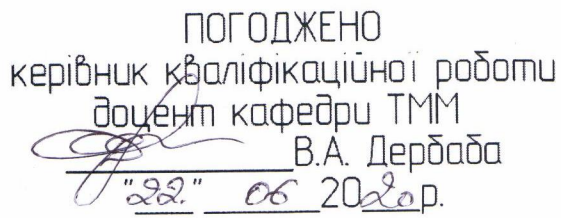 ПОГОДЖЕНО
керівник кваліфікаційної роботи
доцент кафедри ТММ
В.А. Дербаба
"22." 06 2020р.